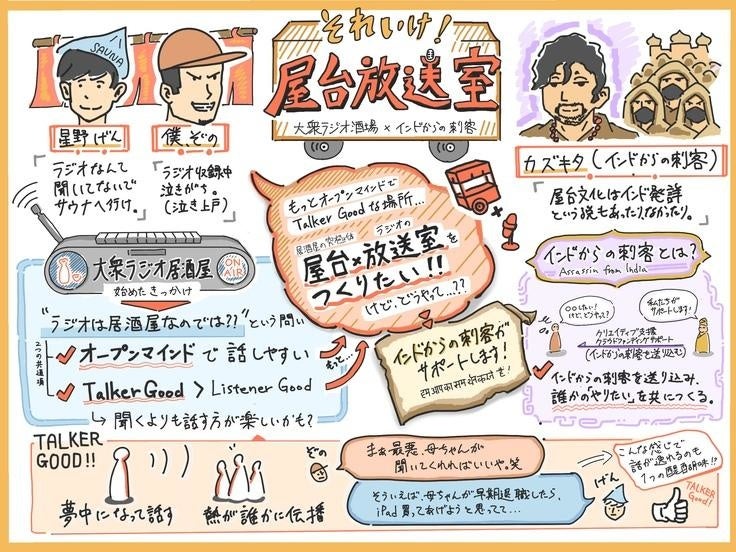 それいけ!
屋台放送室
大衆ラジオ酒場×インドからの刺客
SAUNA
星野げん
僕、ぞの
「ラジオなんて
聞いてないで
サウナへ行け。」
「ラジオ収録中
泣きがち。
(泣き上戸)」
カズキタ(インドからの刺客)
「屋台文化はインド発祥
という説もあったりなかったり。」
大衆ラジオ居酒屋
ON AIR
始めたきっかけ
"ラジオは居酒屋なのでは??"という問い
2つの共通項
オープンマインドで話しやすい
Talker Good > Listener Good
聞くよりも話す方が楽しいかも?
もっと…
もっとオープンマインドで
Talker Goodな場所…
居酒屋の究極体
ラジオの
屋台×放送室を
つくりたい!!
けど、どうやって…??
インドからの刺客が
サポートします!
インドからの刺客とは?
Assassin from India
○○したい!
けど、どうやって?
私たちが
サポートします!
クリエイティブ支援
クラウドファンディングサポート
(インドからの刺客を送り込む)
インドからの刺客を送り込み、
誰かの「やりたい」を共につくる。
TALKER
GOOD!!
夢中になって話す
熱が誰かに伝播
ぞの
まぁ最悪、母ちゃんが
聞いてくれればいいや。笑
そういえば、母ちゃんが早期退職したら、
iPad買ってあげようと思ってて…
げん
こんな感じで
話が逸れるのも
1つの醍醐味!?
TALKER
Good!